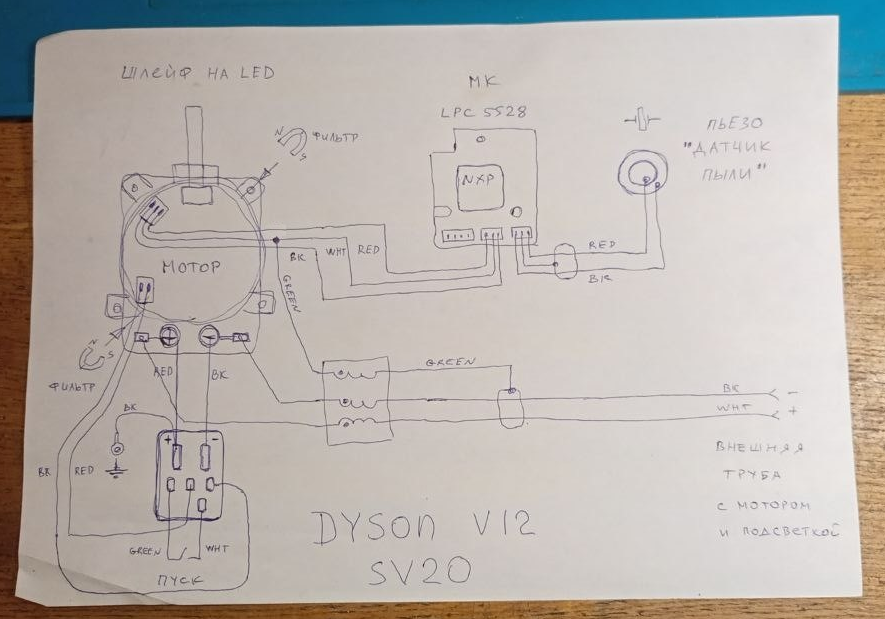 ШЛЕЙФ НА LED
МК
LPC 5528
N
S
ФИЛЬТР
ПЬЕЗО
"ДАТЧИК
ПЫЛИ"
NXP
МОТОР
BK
WHT
RED
RED
BK
GREEN
N
S
ФИЛЬТР
RED
BK
GREEN
BK
-
WHT
+
BK
+
-
BK
RED
GREEN
WHT
ПУСК
ВНЕШНЯЯ
ТРУБА
С МОТОРОМ
И ПОДСВЕТКОЙ
DYSON V12
SV20